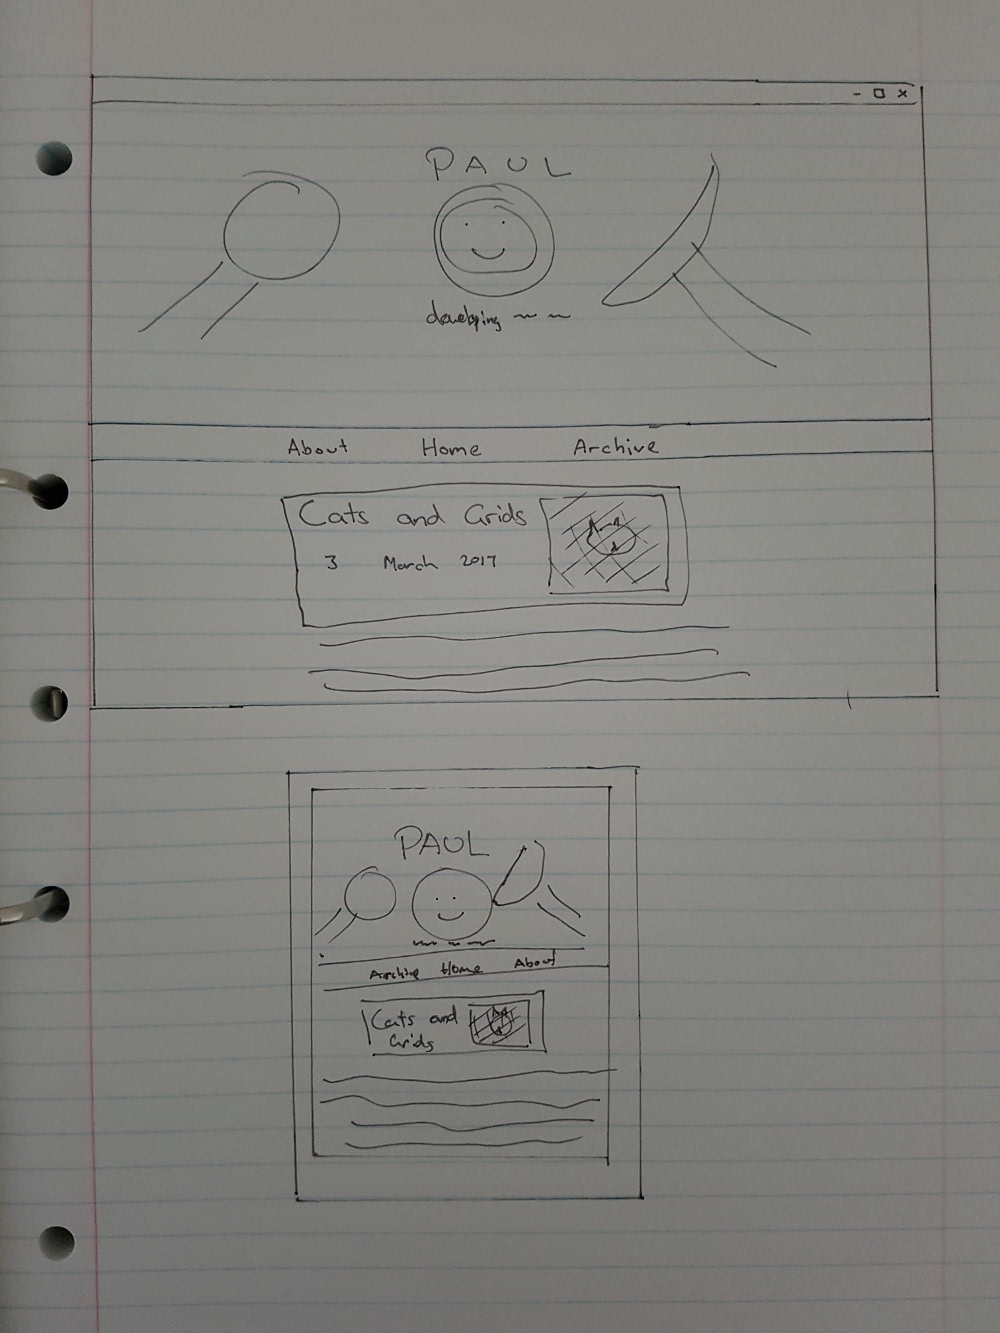 PAUL
developing
About Home Archive
Cats and Grids
3 March 2017
PAUL
Archive Home About
Cats and
Grids